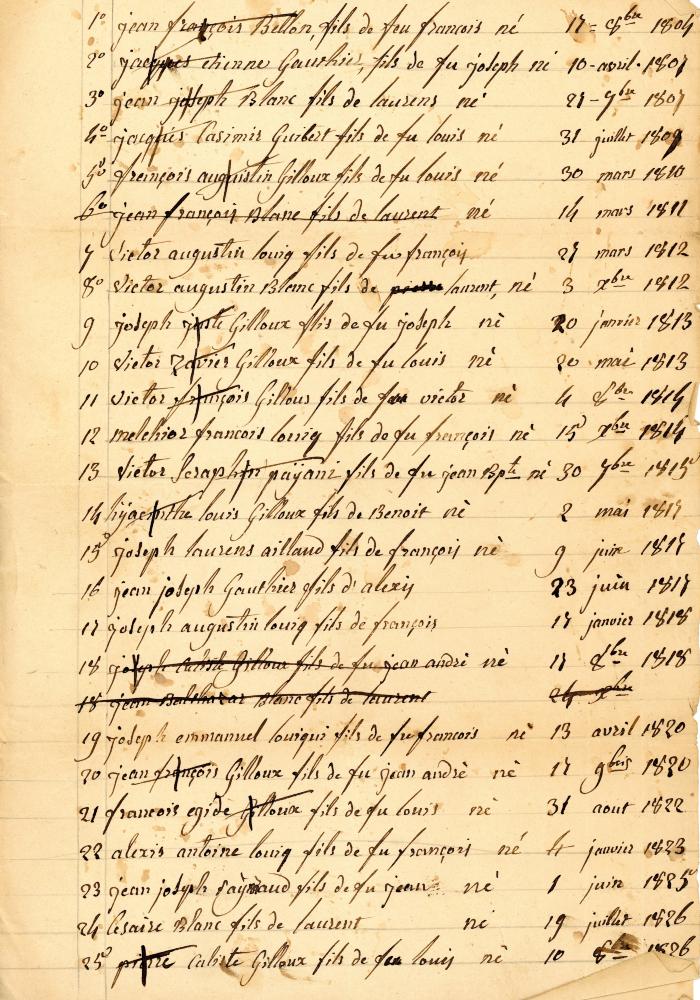 1° jean françois Bellon, fils de feu françois né 17 = 8bre 1804
2° jacques etienne Gauthier, fils de fu joseph né 10 - avril - 1807
3° jean joseph Blanc fils de laurens né 27 - 7bre 1807
4° jacques Casimir Guibert fils de fu louis né 31 juillet 1809
5° freinçois augustin Gilloux fils de fu louis né 30 mars 1810
6° jean françois Blanc fils de laurent né 14 mars 1811
7 Victor augustin louiq fils de fu françois 27 mars 1812
8° Victor augustin Blanc fils de pierre laurent, né 3 xbre 1812
9 joseph juste Gilloux fils de fu joseph né 20 janvier 1813
10 Victor Zavier Gilloux fils de fu louis né 20 mai 1813
11 Victor françois Gillous fils de fu victor né 4 8bre 1814
12 melchior francois louiq fils de fu françois né 15 xbre 1814
13 Victor Seraphin payani fils de fu jean Bpte né 30 7bre 1815
14 hyacinthe louis Gilloux fils de Benoit né 2 mai 1817
15 joseph laurens aillaud fils de françois né 9 juin 1817
16 jean joseph Gauthier fils d'alexis 23 juin 1817
17 joseph augustin louiq fils de françois 17 janvier 1818
18 joseph Calixte Gilloux fils de fu jean andré né 17 8bre 1818
18 jean Balthazar Blanc fils de laurent 24 xbre
19 joseph emmanuel louiqui fils de fu francois né 13 avril 1820
20 jean françois Gilloux fils de fu jean andrè né 17 9bris 1820
21 francois egide Gilloux fils de fu louis né 31 aout 1822
22 alexis antoine louiq fils de fu françois né 4 janvier 1823
23 jean joseph Raynaud fils de fu jean né 1 juin 1825
24 Cesaire Blanc fils de laurent né 19 juillet 1826
25 pierre Caliste Gilloux fils de fu louis né 10 8bre 1826